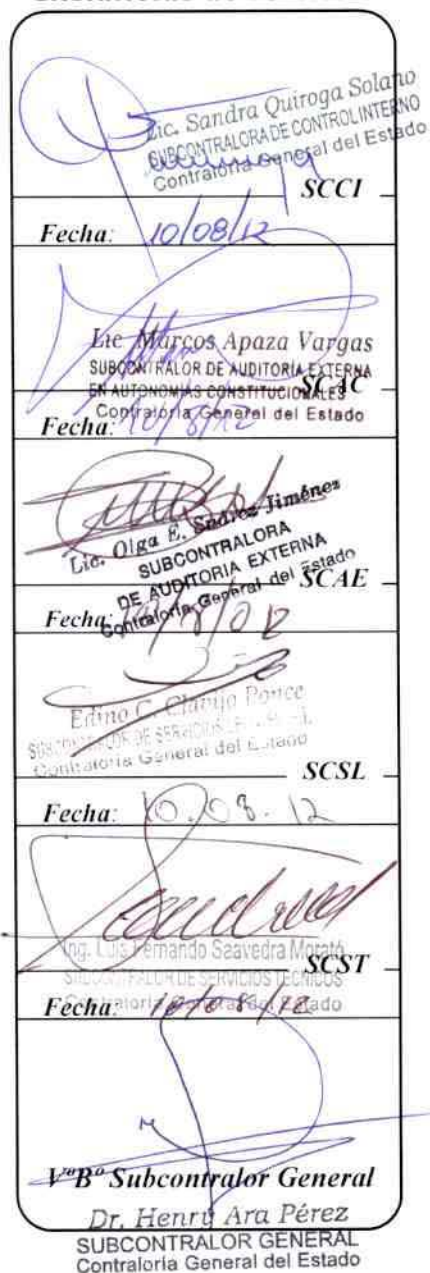 Lic. Sandra Quiroga Solano
SUBCONTRALORA DE CONTROL INTERNO
Contraloría General del Estado
SCCI
Fecha: 10/08/12
Lic Marcos Apaza Vargas
SUBCONTRALOR DE AUDITORÍA EXTERNA
EN AUTONOMÍAS CONSTITUCIONALES
SCAC
Contraloría General del Estado
Fecha: 10/8/12
Lic. Olga E. Suárez Jiménez
SUBCONTRALORA
DE AUDITORIA EXTERNA
Contraloría General del Estado
SCAE
Fecha:
Edino C. Clavijo Ponce
SUBCONTRALOR DE SERVICIOS
Contraloría General del Estado
SCSL
Fecha: 10.08.12
Ing. Luis Fernando Saavedra Morató
SUBCONTRALOR DE SERVICIOS TECNICOS
SCST
Contraloría General del Estado
Fecha: 10/08/12
VºBº Subcontralor General
Dr. Henry Ara Pérez
SUBCONTRALOR GENERAL
Contraloría General del Estado